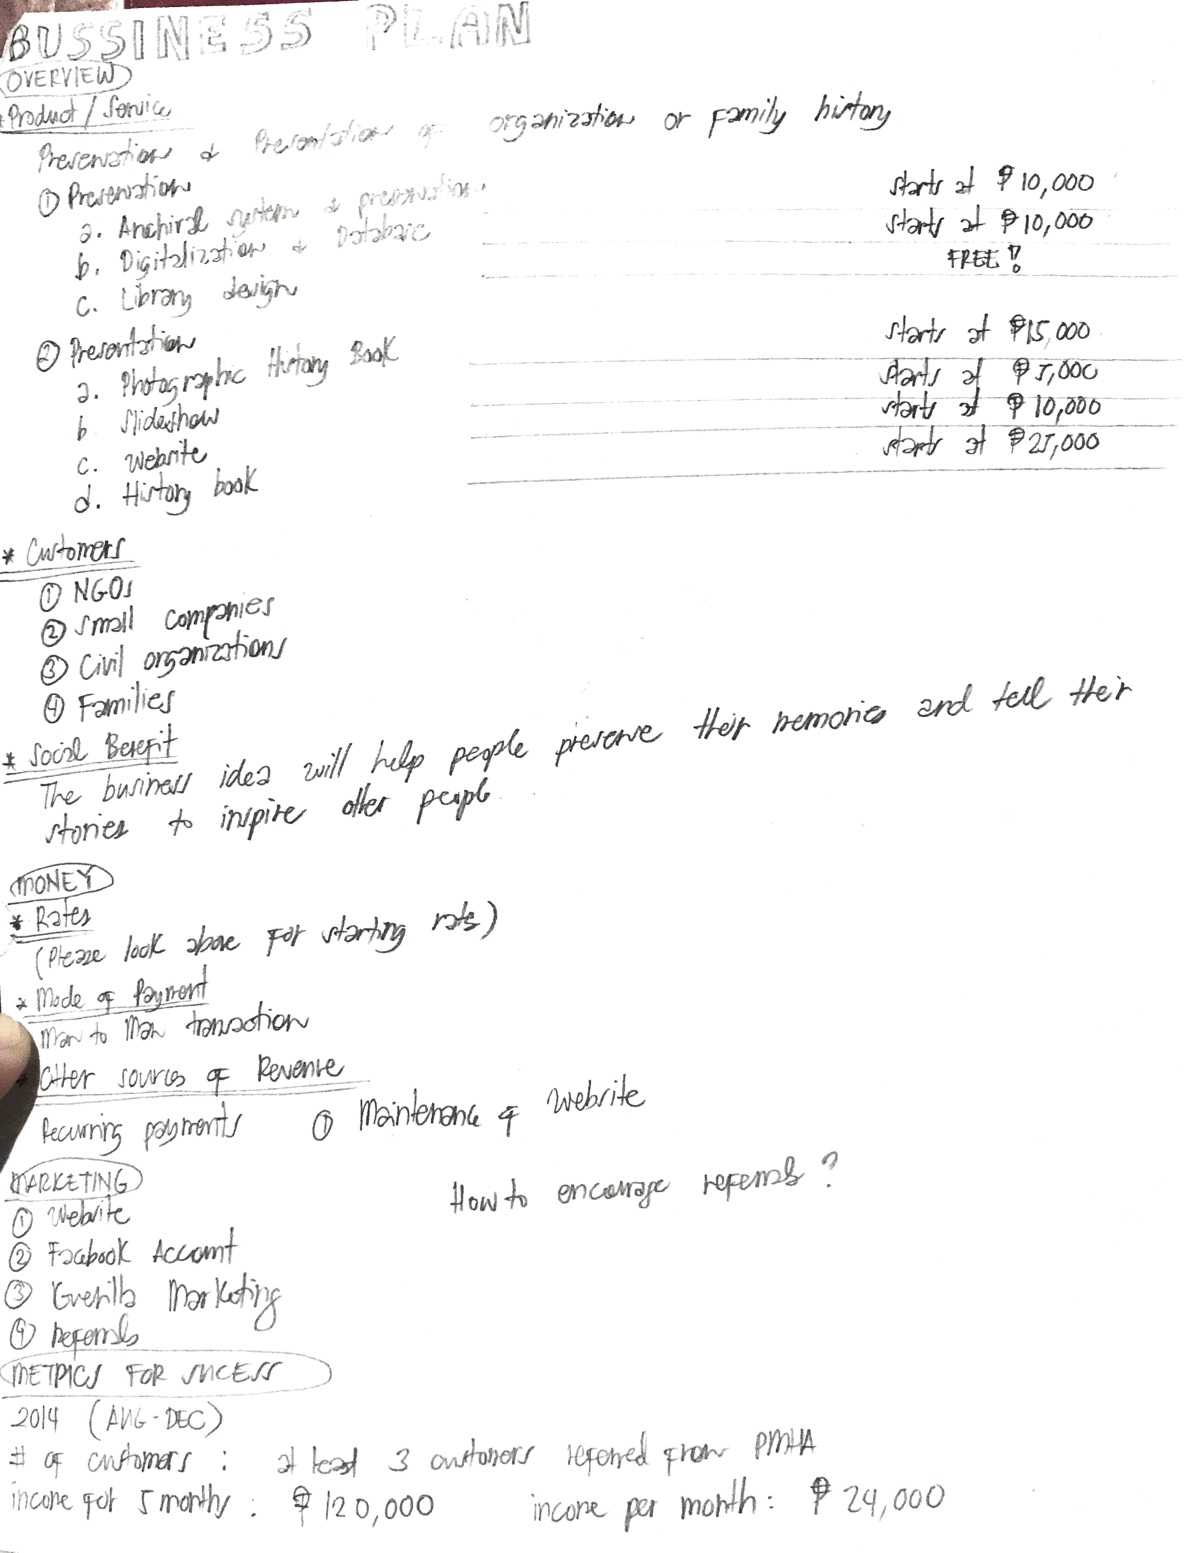 BUSSINESS PLAN
OVERVIEW
* Product / Service
Preservation & Presentation of organization or family history
① Preservation
a. Anchiral system & preservation starts at ₱10,000
b. Digitalization & Database starts at ₱10,000
c. Library design FREE!
② Presentation
a. Photographic History Book starts at ₱15,000
b Slideshow starts at ₱5,000
c. Website starts at ₱10,000
d. History book starts at ₱25,000
* Customers
① NGOs
② Small companies
③ Civil organizations
④ Families
* Social Benefit
The business idea will help people preserve their memories and tell their
stories to inspire other people.
MONEY
* Rates
(Please look above for starting rates)
* Mode of Payment
Man to Man transaction
* Other sources of Revenue
Recurring payments ① Maintenance of website
MARKETING
How to encourage referrals?
① Website
② Facebook Account
③ Guerilla Marketing
④ Referrals
METRICS FOR SUCESS
2014 (AUG-DEC)
# of customers : at least 3 customers referred from PMHA
income for 5 months : ₱120,000 income per month : ₱24,000